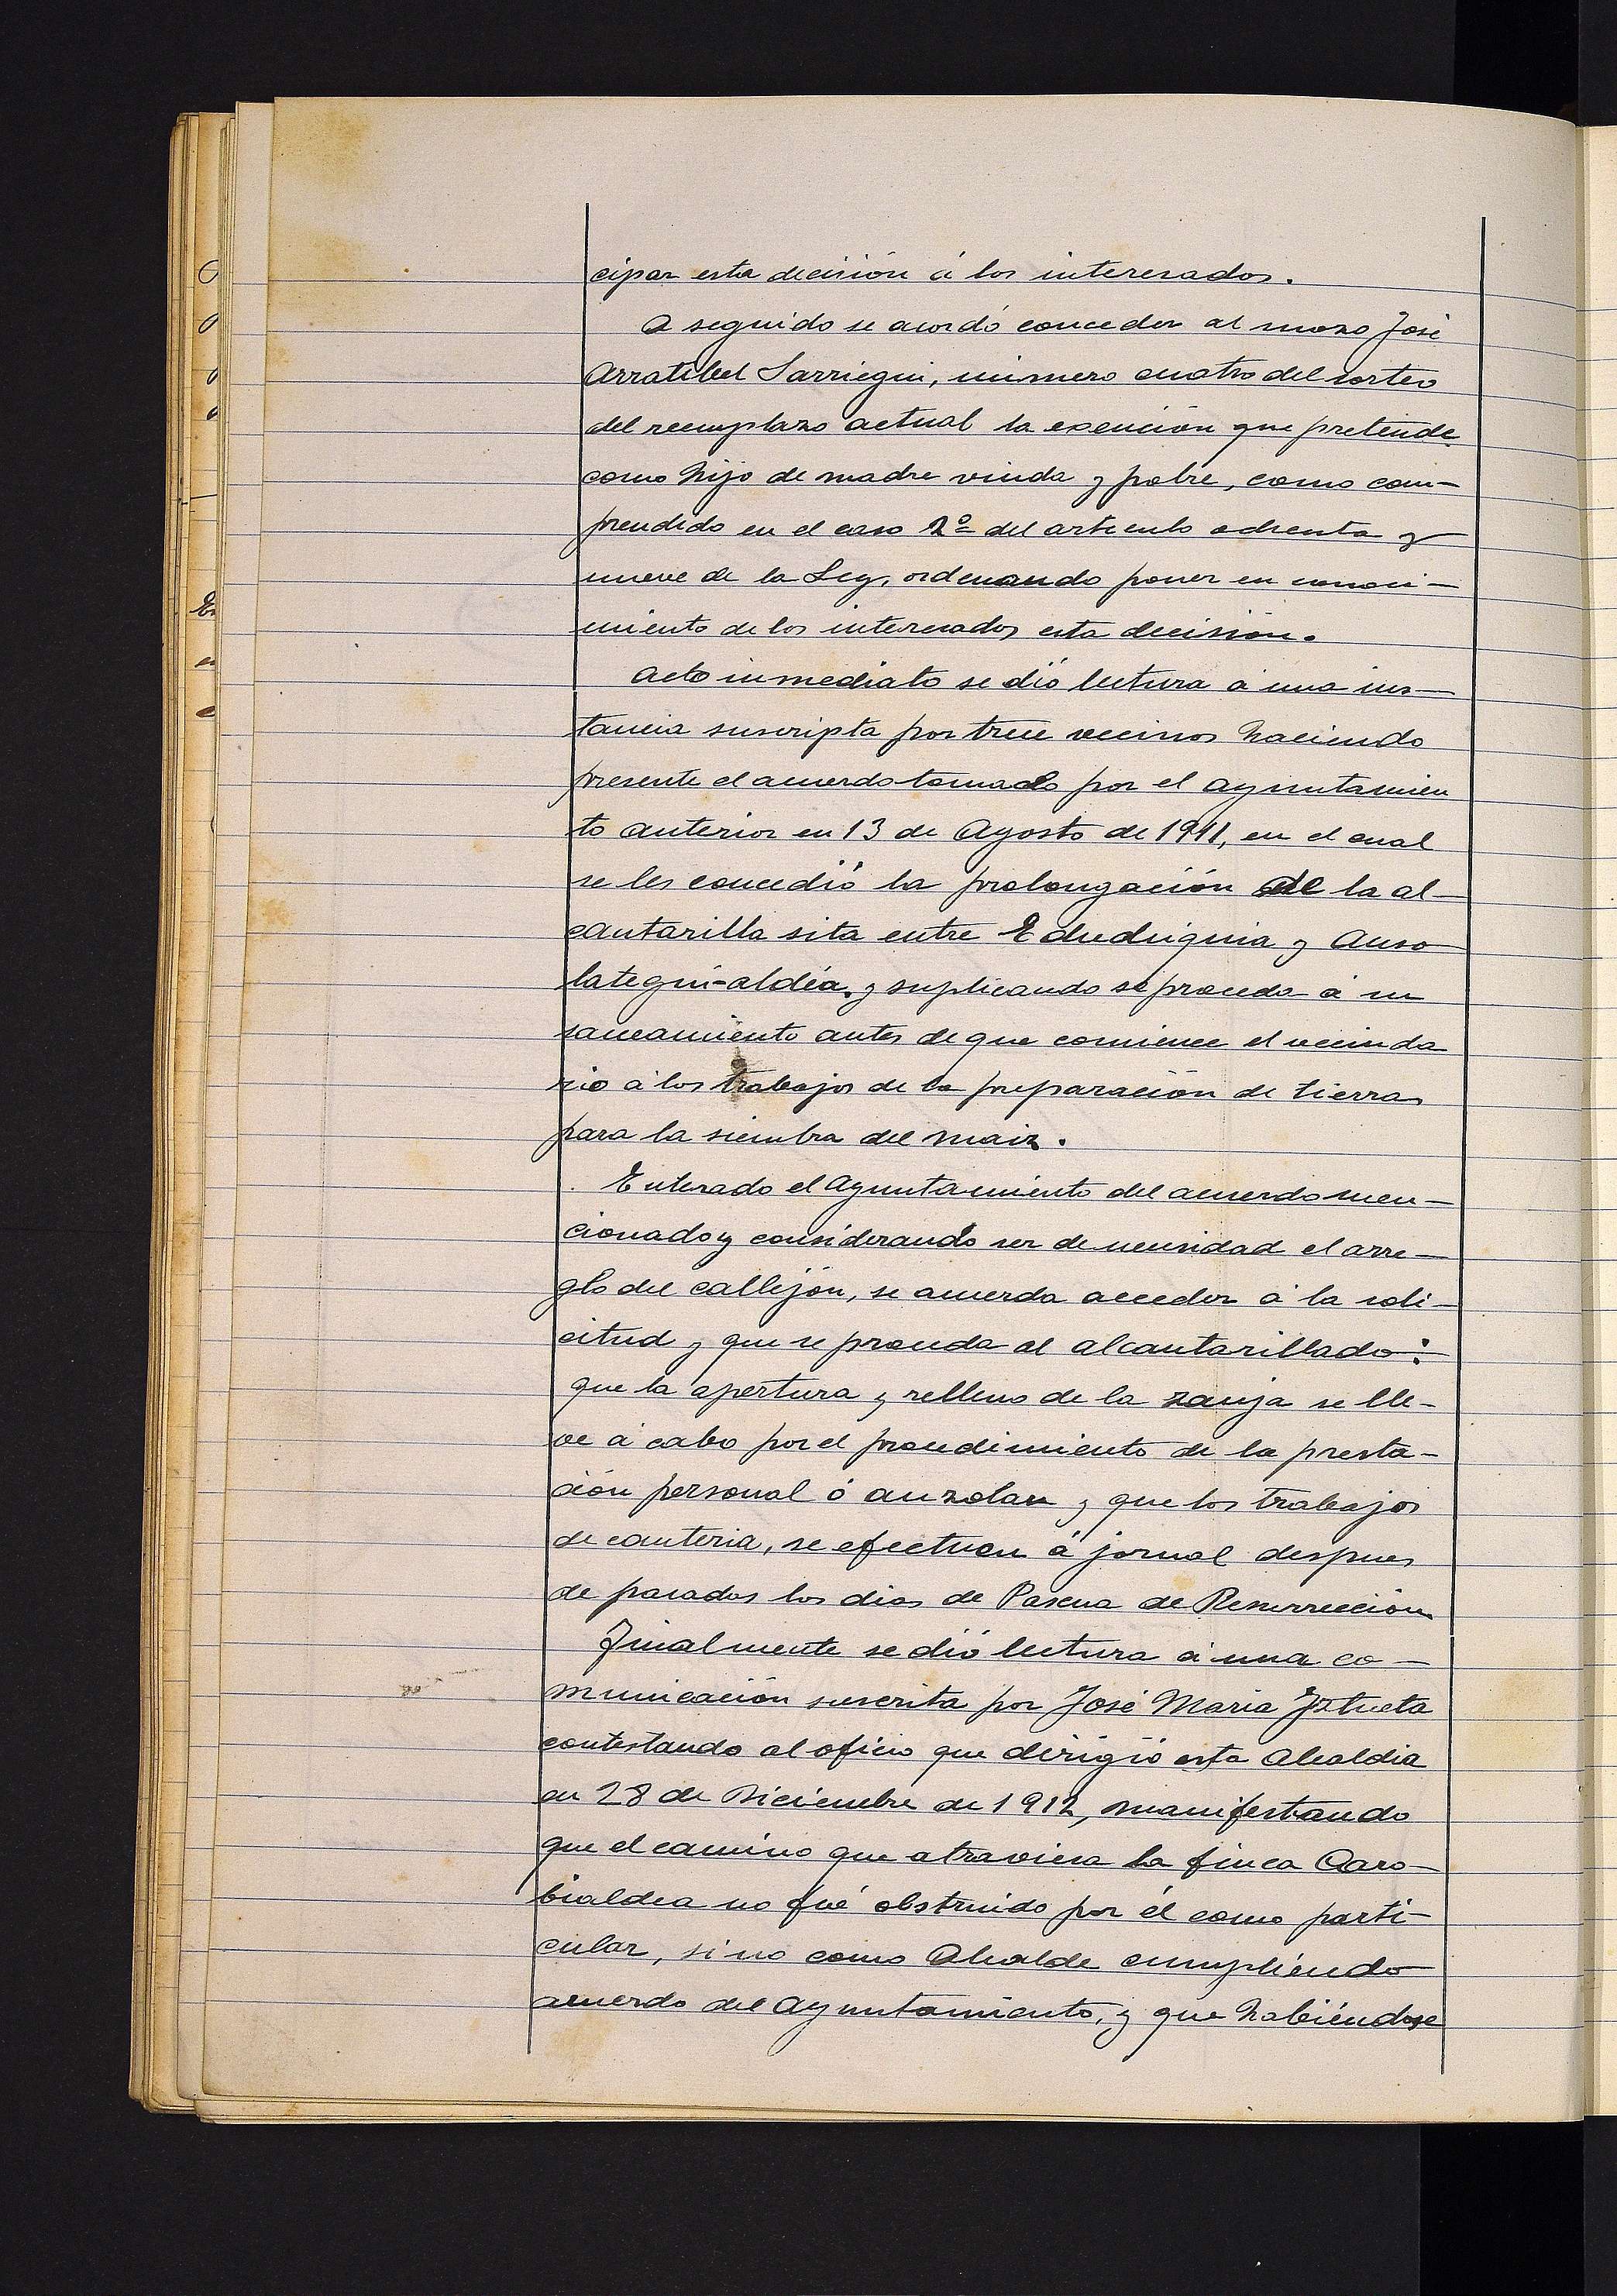 cipar esta decisión á los interesados.
A seguido se acordó conceder al mozo José
Arratibel Sarriegui, número cuatro del sorteo
del reemplazo actual la exención que pretende
como hijo de madre viuda y pobre, como com-
prendido en el caso 2º del articulo ochenta y
nueve de la Ley, ordenando poner en conoci-
miento de los interesados esta decisión.
Acto inmediato se dió lectura á una ins-
tancia suscripta por trece vecinos haciendo
presente el acuerdo tomado por el Ayuntamien
to anterior en 13 de Agosto de 1911, en el cual
se les concedió la prolongación de la al-
cantarilla sita entre Echechiquia y Auso
lategui-aldea, y suplicando se proceda á su
saneamiento antes de que comience el vecinda
rio á los trabajos de la preparación de tierras
para la siembra del maiz.
Enterado el Ayuntamiento del acuerdo men-
cionado y considerando ser de necesidad el arre-
glo del callejón, se acuerda acceder á la soli-
citud y que se proceda al alcantarillado:
que la apertura y relleno de la zanja se lle-
ve á cabo por el procedimiento de la presta-
ción personal ó auzolan y que los trabajos
de canteria, se efectuen á jornal despues
de pasados los dias de Pascua de Resurrección
Finalmente se dió lectura á una co-
municación suscrita por José Maria Iztueta
contestando al oficio que dirigió esta Alcaldia
en 28 de Diciembre de 1912, manifestando
que el camino que atraviesa la finca Garo-
bialdea no fué obstruido por él como parti-
cular, sino como Alcalde cumpliendo
acuerdo del Ayuntamiento, y que habiéndose